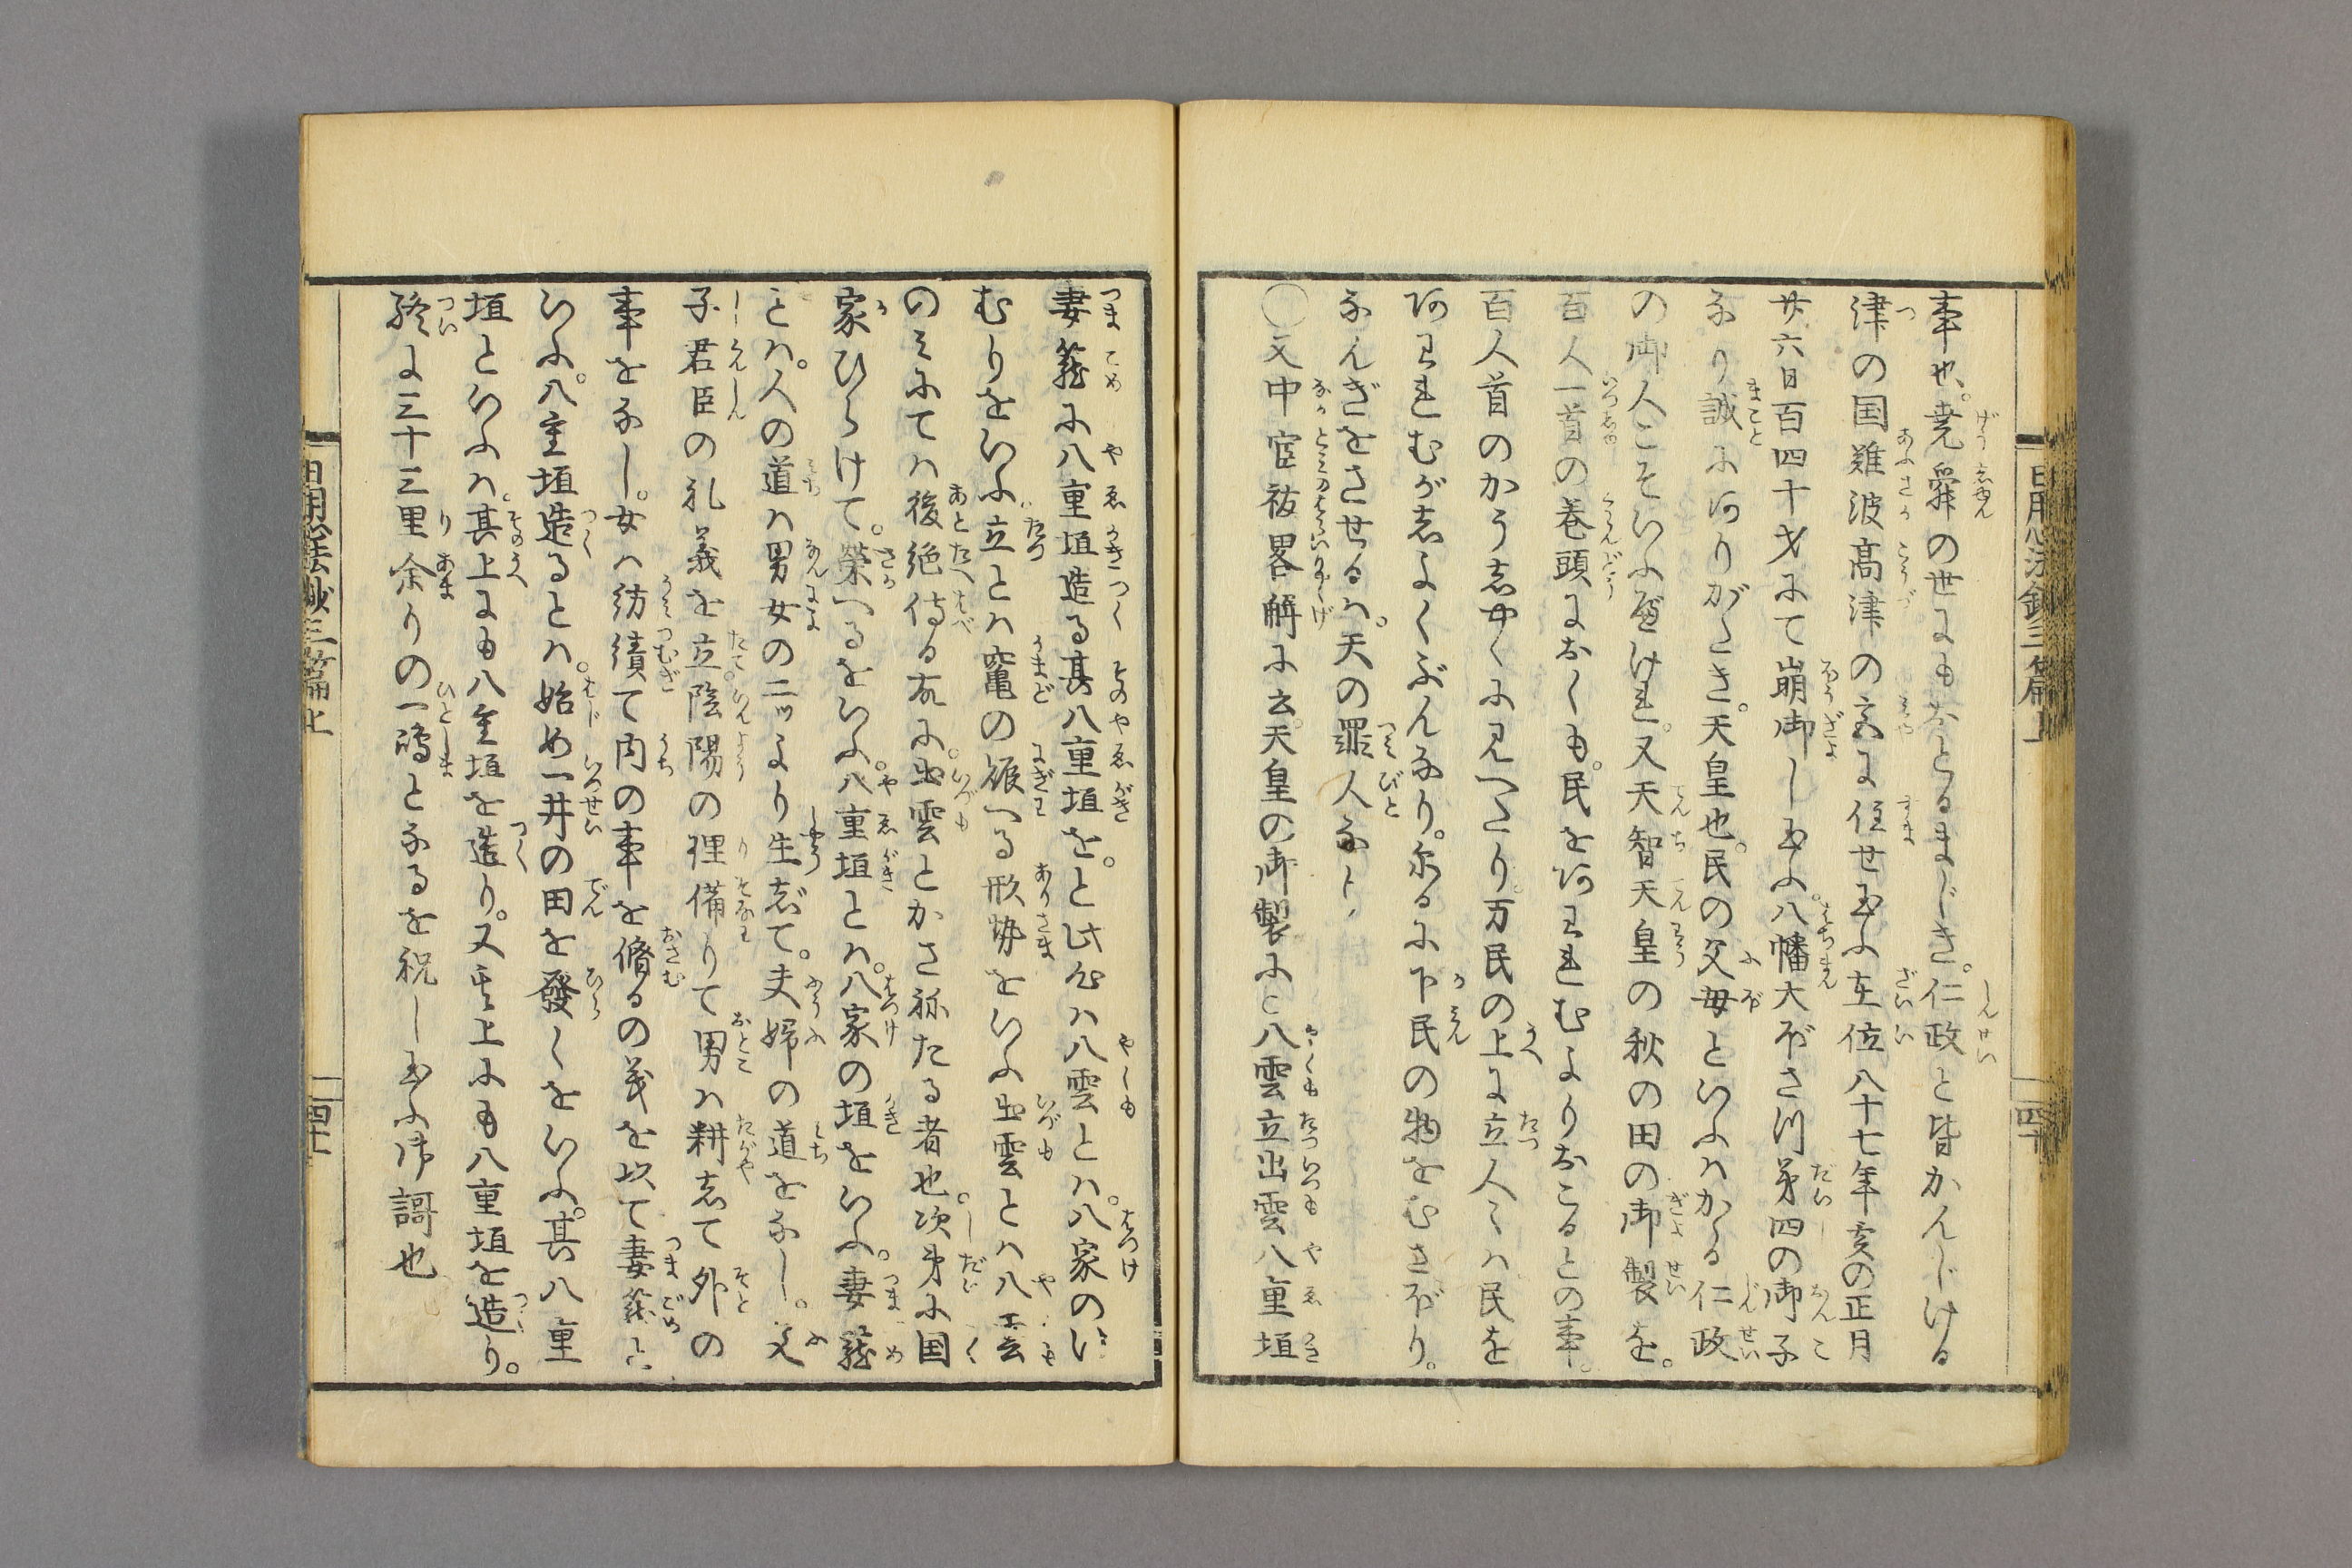 日用心法鈔三篇上
四十
事也。堯舜の世にもおとるまじき。仁政と皆かんじける
津の国難波高津の宮に住せ玉ふ在位八十七年亥の正月
廿六日百四十才にて崩御し玉ふ。八幡大ぼさつ第四の御子
なり誠にありがたき。天皇也。民の父母といふハかゝる仁政
の御人こそいふべけれ。又天智天皇の秋の田の御製を。
百人一首の巻頭におくも。民をあわれむよりおこるとの事。
百人首のかう志やくに見へたり。万民の上に立人〻ハ民を
あわれむが志よくぶんなり。然るに下民の物をむさぼり。
なんぎをさせるハ。天の罪人なり
〇又中臣祓畧解に云。天皇の御製に八雲立出雲八重垣
妻籠に八重垣造る其八重垣を。と此心ハ八雲とハ。八家のけ
むりをいふ。立とハ竈の賑へる形勢をいふ出雲とハ八雲
のミにてハ後絶侍る故に。出雲とかさねたる者也。次第に国
家ひらけて。榮へるをいふ。八重垣とハ。八家の垣をいふ。妻籠
とハ。人の道ハ男女の二ツより生志て。夫婦の道をなし。父
子君臣の礼義を立。陰陽の理備りて男ハ耕志て外の
事をなし。女ハ紡績て内の事を脩るの義を以て妻籠と
いふ。八重垣造るとハ。始め一井の田を發くをいふ。其八重
垣といふハ。其上にも八重垣を造り。又其上にも八重垣を造り。
終に三十三里余りの一嶋となるを祝し玉ふ御謌也
日用心法鈔三篇上
四十一